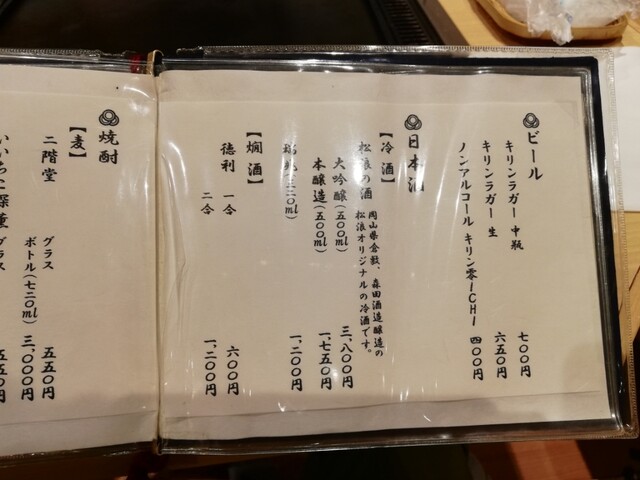 ビール
キリンラガー 中瓶 七〇〇円
キリンラガー 生 六五〇円
ノンアルコール キリン零ICHI 四〇〇円
日本酒
【冷酒】
松浪の酒 岡山県倉敷、森田酒造醸造の
松浪オリジナルの冷酒です。
大吟醸(五〇〇ml) 三、八〇〇円
本醸造(五〇〇ml) 一、七五〇円
一、二〇〇円
【燗酒】
徳利 一合 六〇〇円
二合 一、二〇〇円
焼酎
【麦】
二階堂 グラス 五五〇円
ボトル(七二〇ml) 三、〇〇〇円
グラス 五五〇円